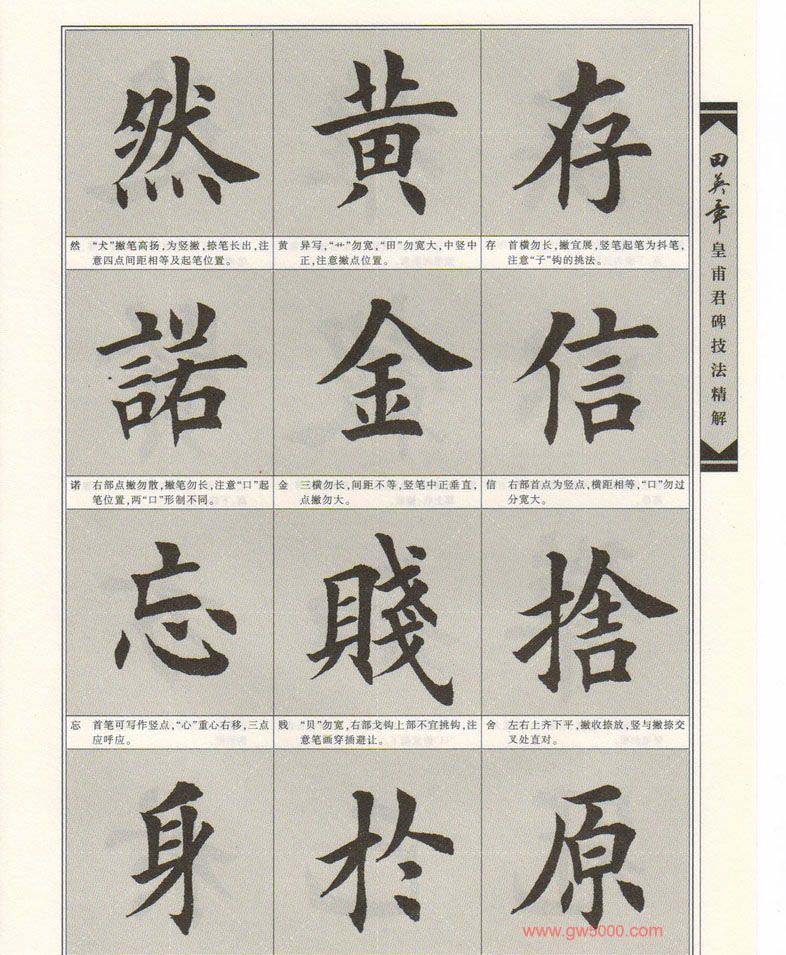 然 黄 存
然 “犬”撇笔高扬,为竖撇,捺笔长出,注
意四点间距相等及起笔位置。
黄 异写,“艹”勿宽,“田”勿宽大,中竖中
正,注意撇点位置。
存 首横勿长,撇宜展,竖笔起笔为抖笔,
注意“子”钩的挑法。
諾 金 信
诺 右部点撇勿散,撇笔勿长,注意“口”起
笔位置,两“口”形制不同。
金 三横勿长,间距不等,竖笔中正垂直,
点撇勿大。
信 右部首点为竖点,横距相等,“口”勿过
分宽大。
忘 賤 捨
忘 首笔可写作竖点,“心”重心右移,三点
应呼应。
贱 “贝”勿宽,右部戈钩上部不宜挑钩,注
意笔画穿插避让。
舍 左右上齐下平,撇收捺放,竖与撇捺交
叉处直对。
身 於 原
田英章皇甫君碑技法精解
www.gw5000.com